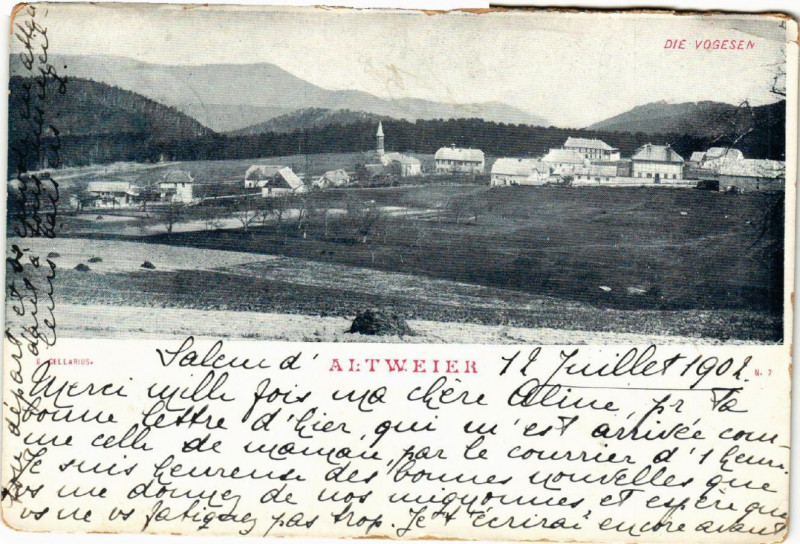 DIE VOGESEN
E. CELLARIUS.
Salem d' ALTWEIER 12 Juillet 1902.
N. 7
Merci mille fois ma chère Aline, pr ta
bonne lettre d'hier, qui m'est arrivée com-
me celle de maman, par le courrier d'1 heure.
Je suis heureuse des bonnes nouvelles que
vs me donnez de nos mignonnes et espère que
vs ne vs fatiguez pas trop. Je t'écrirai encore avant
départ et si